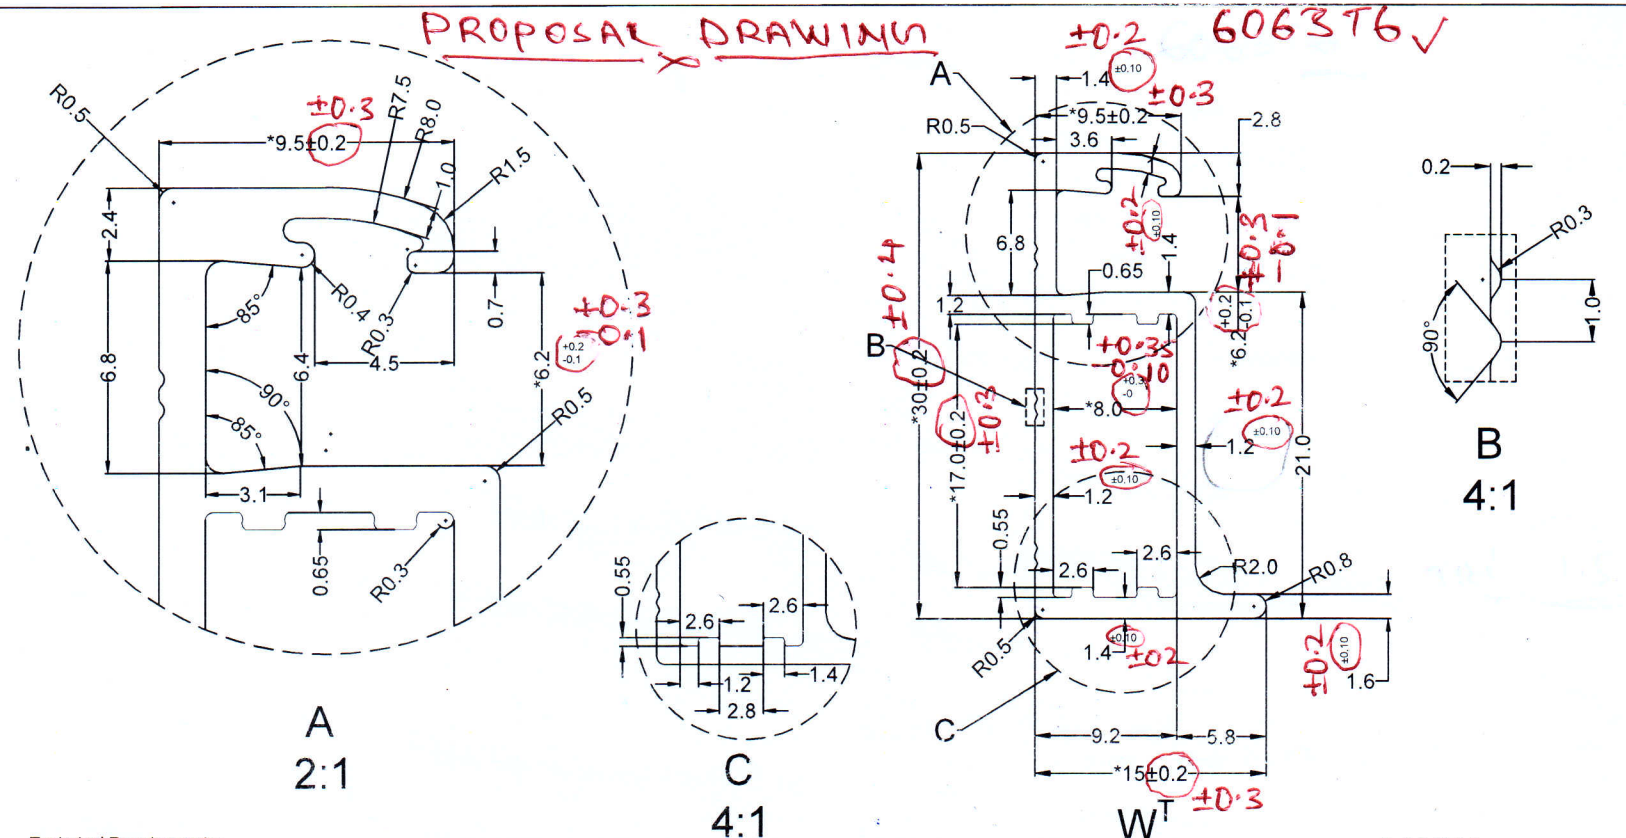 PROPOSAL DRAWING
6063T6 ✓
R0.5
±0.3
*9.5±0.2
R7.5
R8.0
1.0
R1.5
2.4
6.8
85°
90°
85°
6.4
R0.4
R0.3
4.5
0.7
*6.2
+0.2
-0.1
+0.3
-0.1
R0.5
3.1
0.65
R0.3
A
2:1
0.55
2.6
2.6
1.2
1.4
2.8
C
4:1
A
±0.2
1.4
±0.10
±0.3
*9.5±0.2
R0.5
3.6
2.8
6.8
±0.2
±0.10
1.4
0.65
1.2
+0.3
-0.1
+0.2
-0.1
*6.2
B
±0.4
*30±0.2
*17.0±0.2
±0.3
+0.35
-0.10
+0.3
-0
*8.0
±0.2
±0.10
1.2
±0.2
±0.10
1.2
21.0
0.55
2.6
2.6
R2.0
R0.8
R0.5
±0.10
1.4
±02
±0.2
±0.10
1.6
C
9.2
5.8
*15±0.2
±0.3
WT
0.2
R0.3
90°
1.0
B
4:1